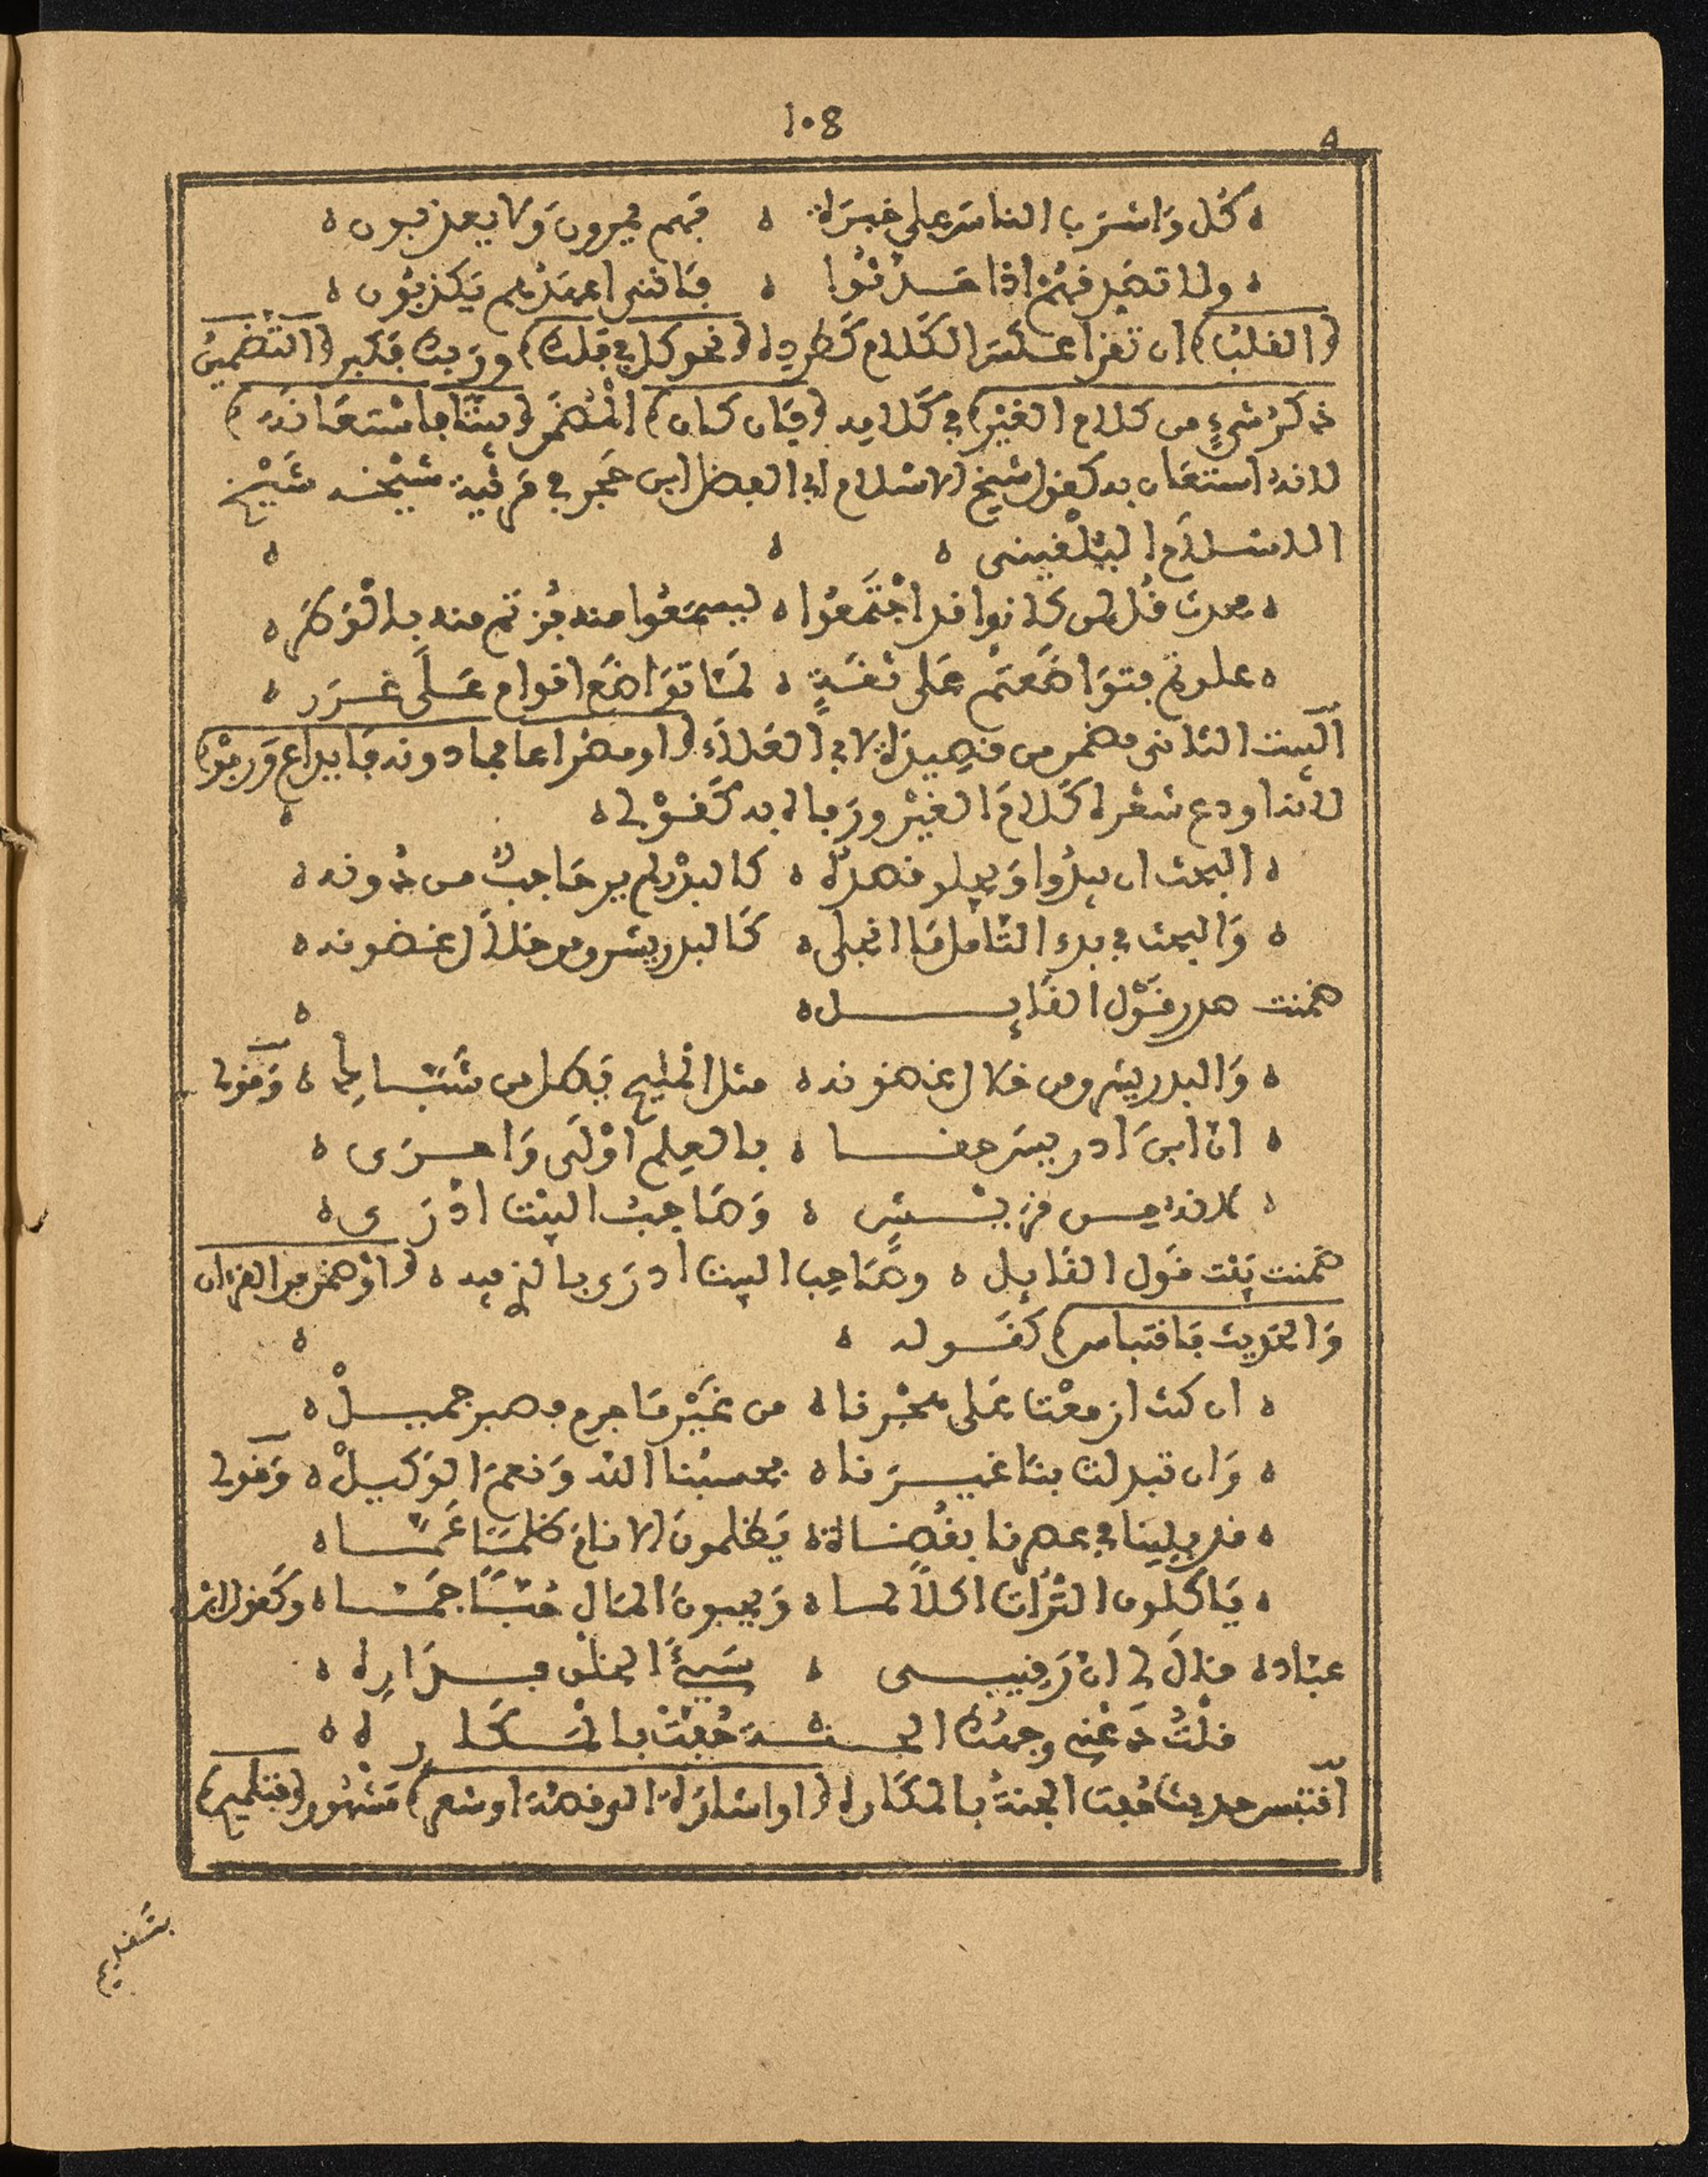 108
ه كُل وَاشرَب الناس على خبرة ه فهم يمرون ولا يعذبون ه
ه ولا تصدقهم اذا حدثوا ه فانني اعهدهم يكذبون ه
(القلب) ان تقرا عكس الكلام كطرده (نحو كل في فلك) وربك فكبر (التضمين
ذكر شيءٍ من كلام الغيْر) في كلامه (فان كان) المُضمّن (بيتًا فاستعانة)
لانه استعان به كقول شيخ الاسلام ابي الفضل ابن حجر في مرثية شيخه شَيْخ
الاسلام البلقيني ه ه ه
ه محدث قُل لمن كانوا قد اجْتَمعُوا ه ليسمَعُوا منه فُزتم منه بالوَطَر ه
ه علوتم فتوَاضَعتم عَلى ثقَةٍ ه لمّا توَاضَع اقوام عَلَى غَرَر ه
البيت الثاني مضمن من قصيدة لابي العَلاَء (او مصْراعا فما دونه فايداع وَرفوٌ)
لانه اودع شعره كَلامَ الغيْر ورَفاه به كَقوْله ه ه
ه البحث ان يبدُوا وَيجلو قصدَه ه كالبدْر لم ير حَاجبٌ من دُونه ه
ه وَالبحث في بدء التّأمل مَا انجلى ه كَالبدر يشرق من خلال غضونه ه
ضمنت صدر قوْل القَايل ه ه
ه وَالبدر يشرق من خلال غصونه ه مثل المليح يَطل من شبّاك ه وَقوله
ه ان ابن ادريس حقا ه بالعِلم اوْلَى وَاحرَى ه
ه لانه من قريش ه وَصَاحبُ البيْت ادْرَى ه
ضمنت بَيْت قَول القَايل ه وصَاحب البيت ادرَى بالذي فيه ه (اوْ ضمن من القرءان
وَالحَديث فاقتباس) كَقَوله ه ه
ه ان كنت ازمعْت عَلى هجْرنا ه من غَيْر مَا جرم فصبر جميلْ ه
ه وَان تبدلت بنَا غيرَنا ه فحسبُنا الله وَنعمَ الوَكيلْ ه وَقوله
ه قد بلينا في عصرنا بقُضاة ه يَظلمونَ الانامَ ظلمًا عَمَّا ه
ه يَاكلون التُّرَاث اكلاً لما ه وَيحبونَ المَال حُبًّا جَمَّا ه وكَقول ابن
عبّاد ه قالَ لي ان رَقيبي ه سَيئُ الخلق فدَاره ه
قلْتُ دَعْني وجهُك الجنة حُفتْ بالمكاره ه
اقتبس حديث حُفت الجنةُ بالمكَاره (او اشارَة الى قصَّة او شعر) مَشْهُور (فتلميح)
بتقديم